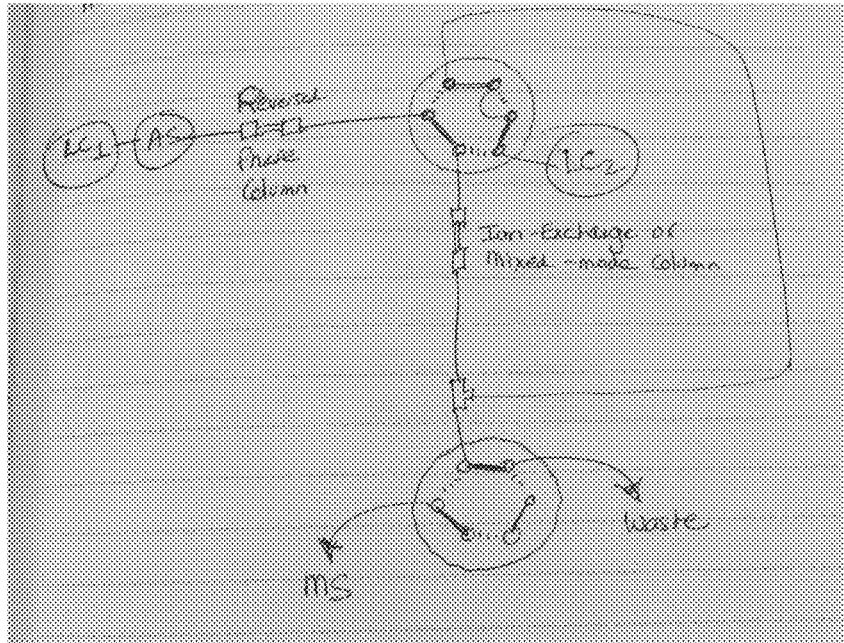 LC1
AS
Reversed
Phase
Column
LC2
Ion-Exchange or
Mixed-mode Column
Waste
MS